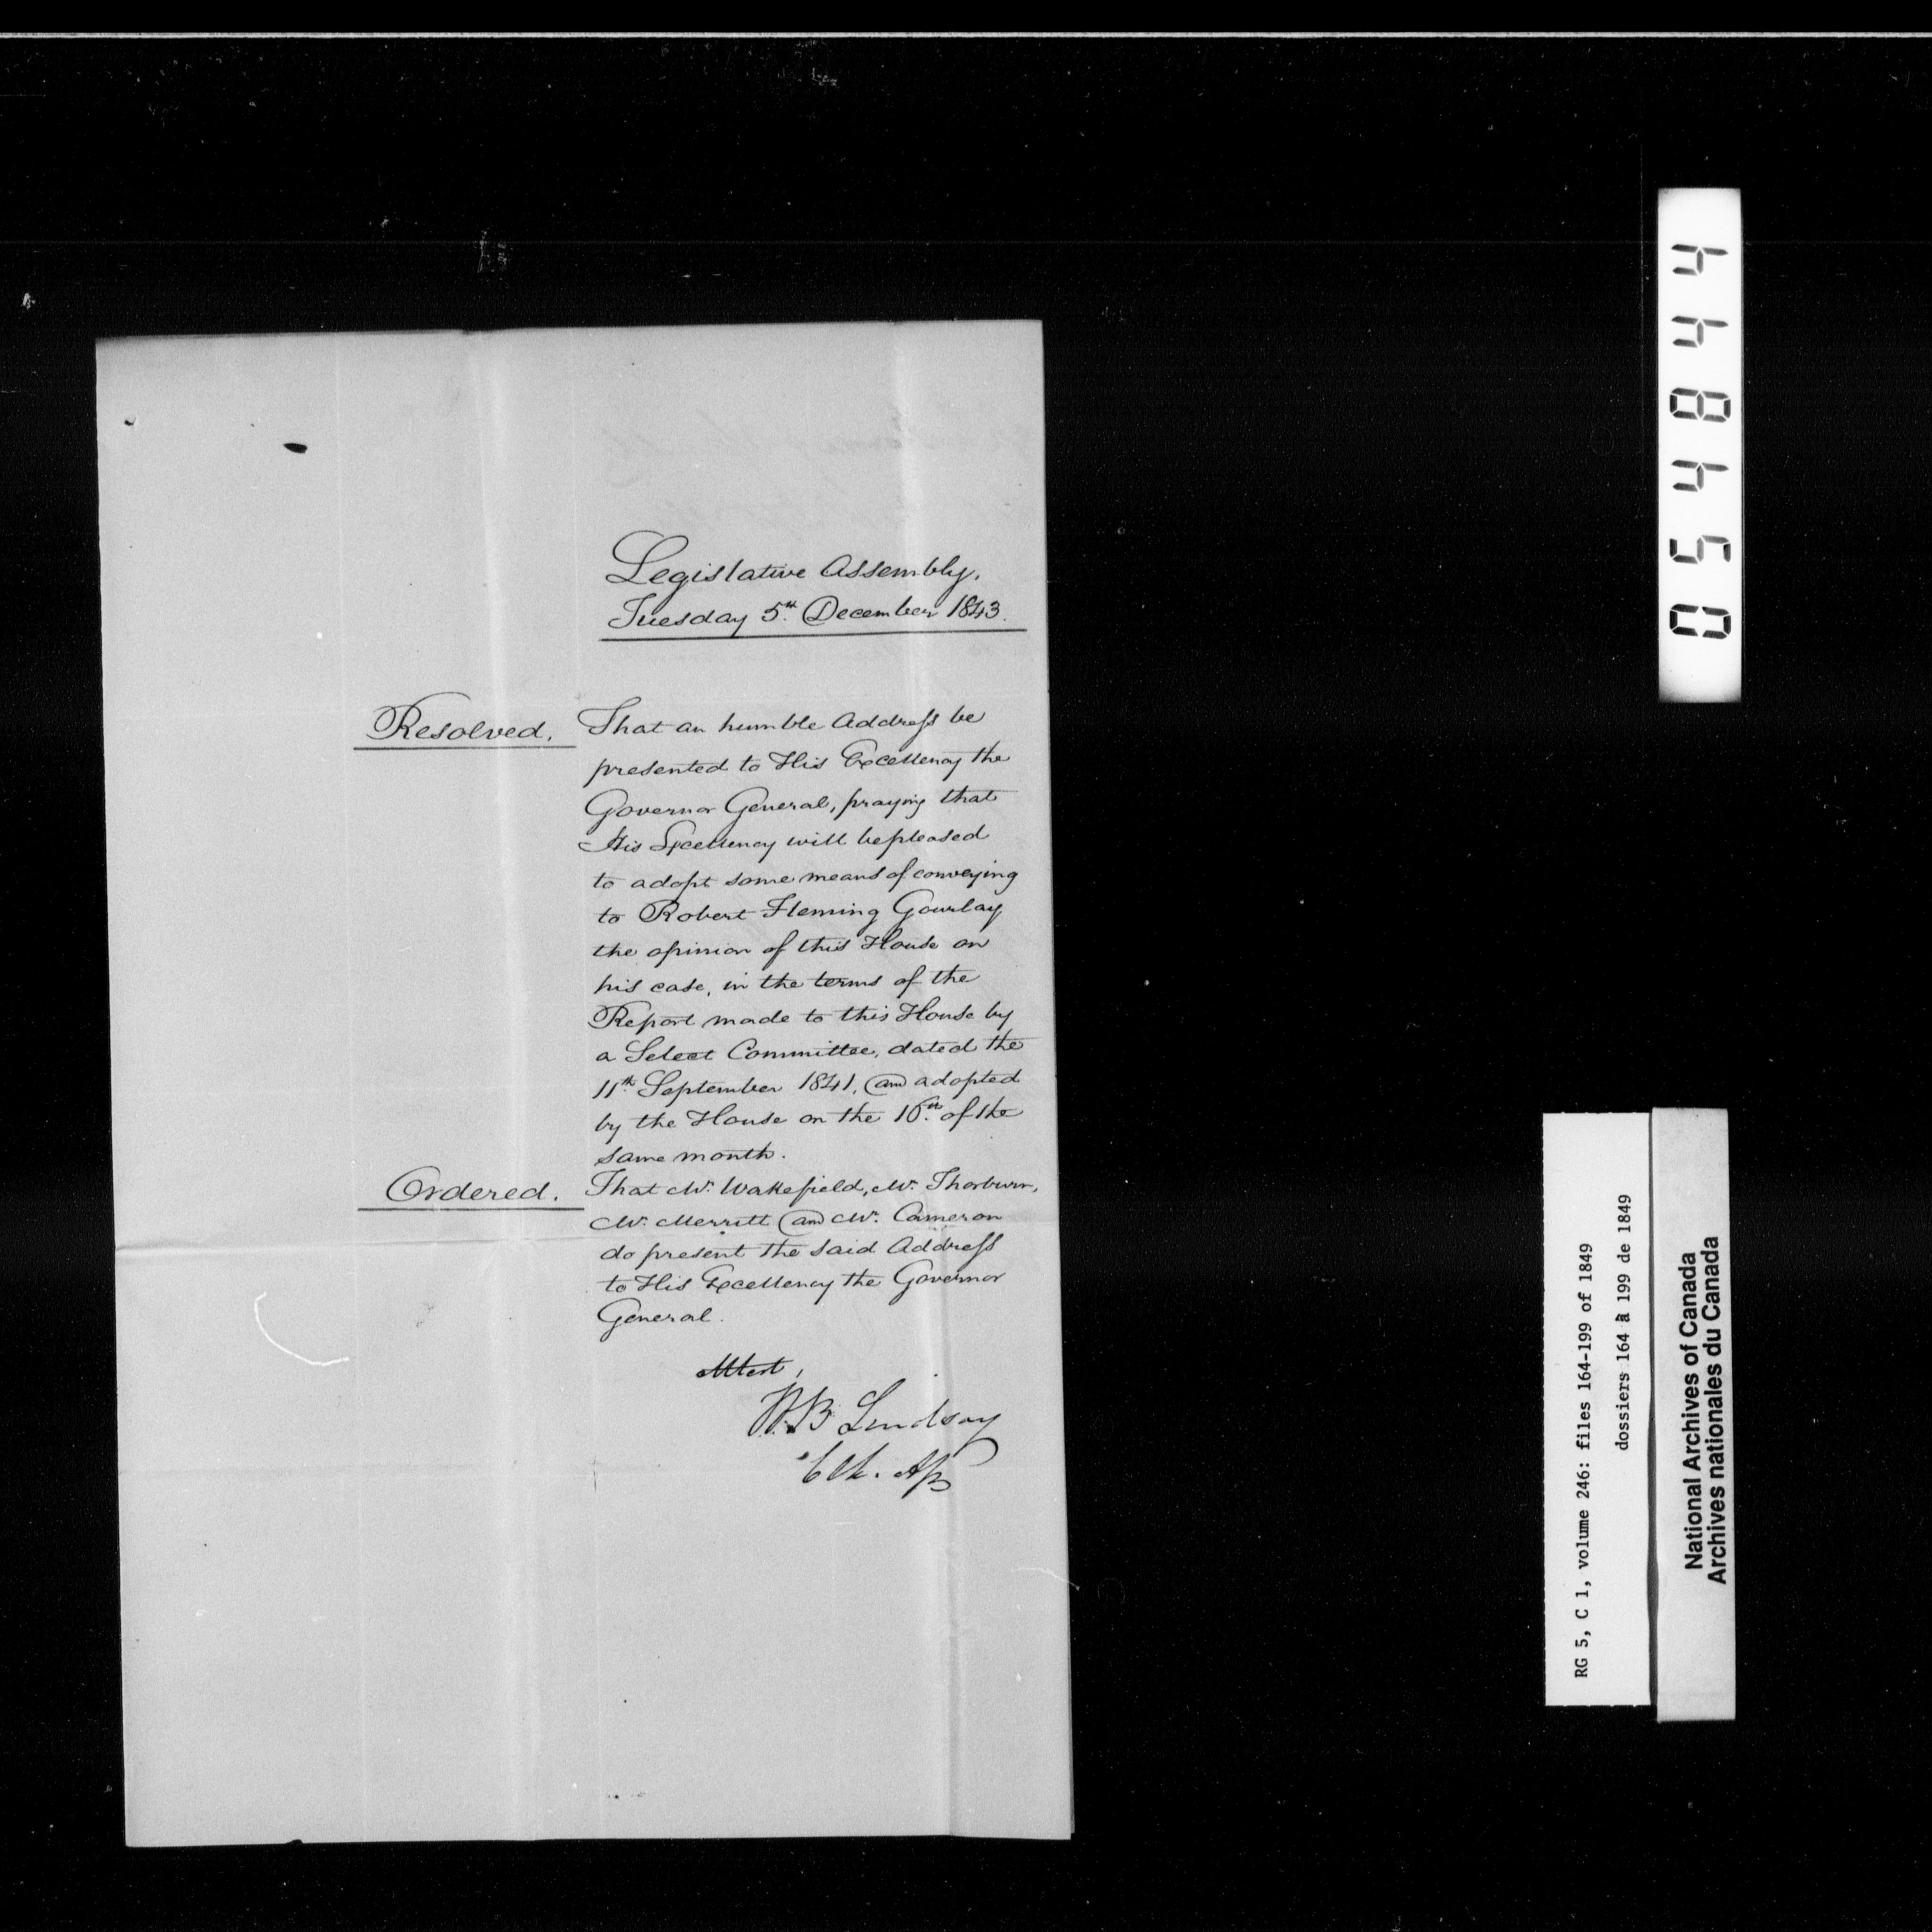 Legislative Assembly,
Tuesday 5th December 1843.
Resolved. That an humble Address be
presented to His Excellency the
Governor General, praying that
His Excellency will be pleased
to adopt some means of conveying
to Robert Fleming Gourlay
the opinion of this House on
his case, in the terms of the
Report made to this House by
a Select Committee, dated the
11th September 1841, and adopted
by the House on the 16th of the
same month.
Ordered. That Mr. Wakefield, Mr. Thorburn,
Mr. Merritt and Mr. Cameron
do present the said Address
to His Excellency the Governor
General.
Attest,
W.B Lindsay
Clk. Ass
054844
RG 5, C 1, volume 246: files 164-199 of 1849
dossiers 164 à 199 de 1849
National Archives of Canada
Archives nationales du Canada